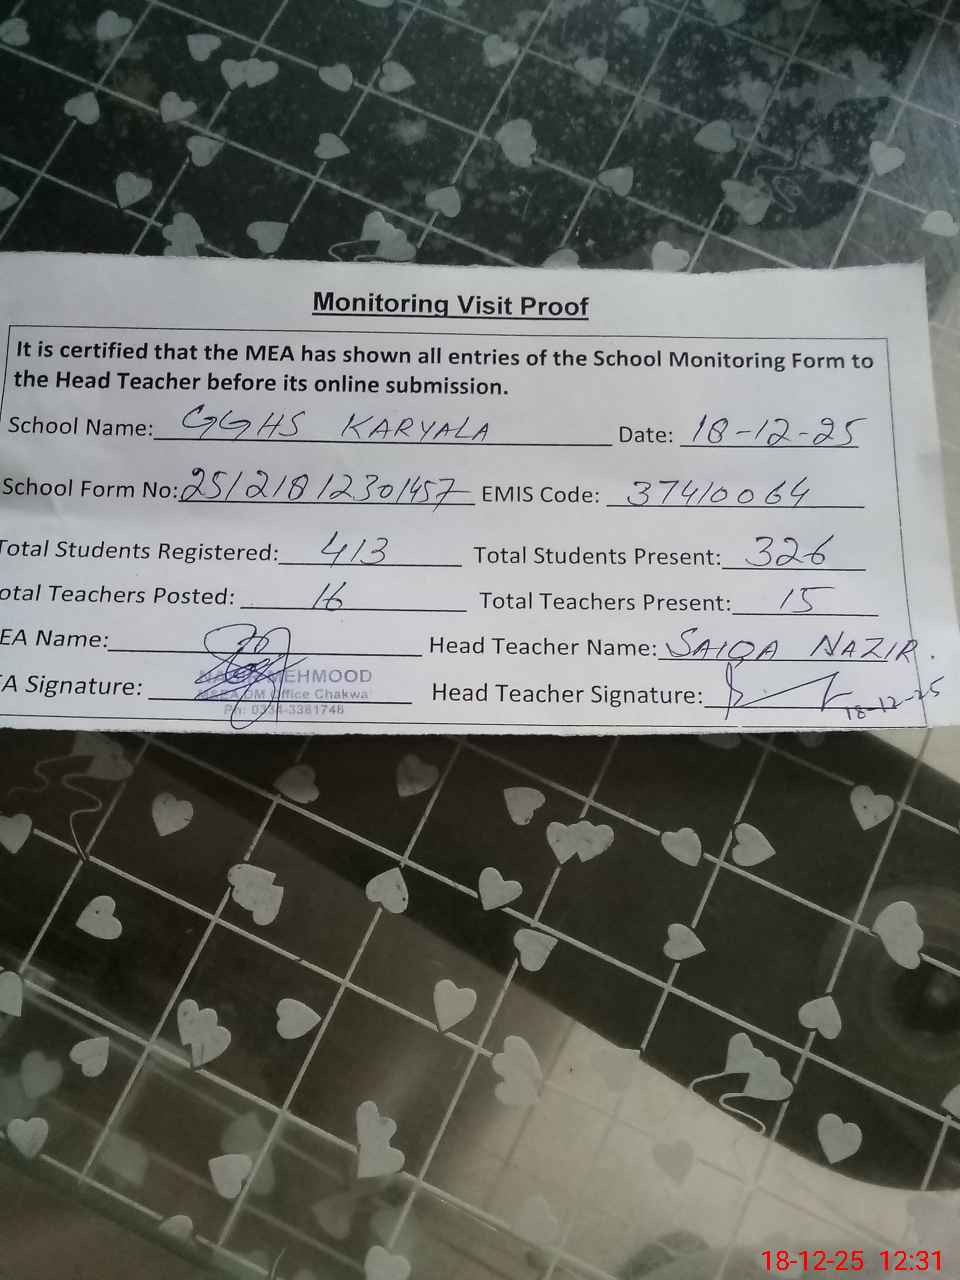 Monitoring Visit Proof
It is certified that the MEA has shown all entries of the School Monitoring Form to
the Head Teacher before its online submission.
School Name: GGHS KARYALA Date: 18-12-25
School Form No: 25121812301457 EMIS Code: 37410064
Total Students Registered: 413 Total Students Present: 326
otal Teachers Posted: 16 Total Teachers Present: 15
EA Name: Head Teacher Name: SAIQA NAZIR.
MEHMOOD
A Signature: Head Teacher Signature: 18-12-25
Office Chakwal
Ph: 0334-3381748
18-12-25 12:31